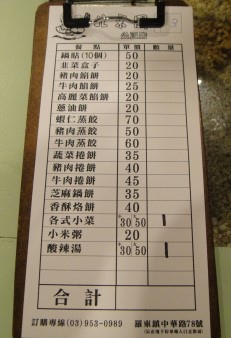 餐點 單價 數量
鍋貼(10個) 50
韭菜盒子 20
豬肉餡餅 20
牛肉餡餅 25
高麗菜餡餅 20
蔥油餅 20
蝦仁蒸餃 70
豬肉蒸餃 50
牛肉蒸餃 60
蔬菜捲餅 35
豬肉捲餅 40
牛肉捲餅 45
芝麻鍋餅 35
香酥烙餅 40
各式小菜 30 50
小米粥 20
酸辣湯 30 50
合計
訂購專線(03)953-0989 羅東鎮中華路78號